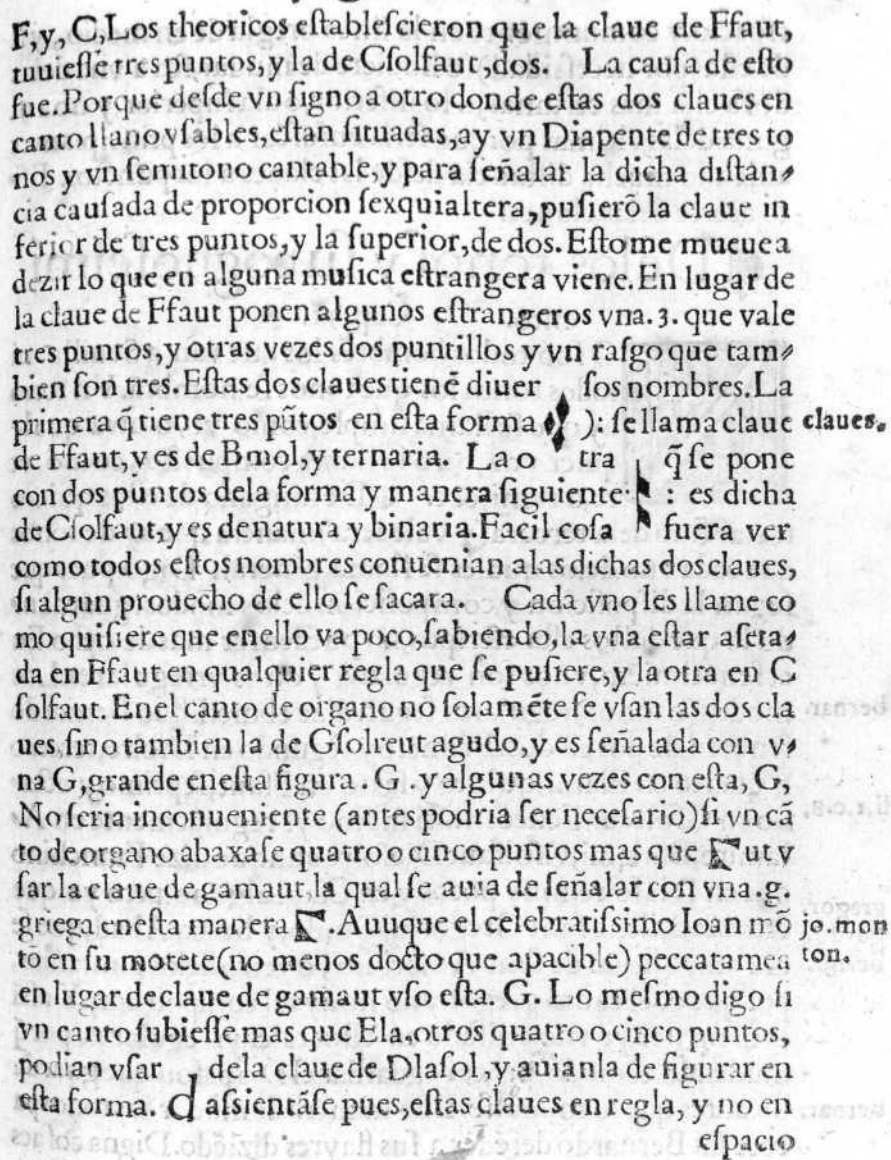 F,y, C,Los theoricos eſtableſcieron que la claue de Ffaut,
tuuieſſe tres puntos, y la de Cſolfaut,dos. La cauſa de eſto
fue. Porque deſde vn ſigno a otro donde eſtas dos claues en
canto llano vſables, eſtan ſituadas, ay vn Diapente de tres to
nos y vn ſemitono cantable, y para ſeñalar la dicha diſtan⸗
cia cauſada de proporcion ſexquialtera, puſierõ la claue in
ferior de tres puntos, y la ſuperior, de dos. Eſto me mueue a
dezir lo que en alguna muſica eſtrangera viene. En lugar de
la claue de Ffaut ponen algunos eſtrangeros vna. 3. que vale
tres puntos, y otras vezes dos puntillos y vn raſgo que tam⸗
bien ſon tres. Eſtas dos claues tienẽ diuer ſos nombres. La
primera q̃ tiene tres pũtos en eſta forma ): ſe llama claue claues.
de Ffaut, y es de Bmol, y ternaria. La o tra q̃ ſe pone
con dos puntos dela forma y manera ſiguiente : es dicha
de Cſolfaut, y es de natura y binaria. Facil coſa fuera ver
como todos eſtos nombres conuenian alas dichas dos claues,
ſi algun prouecho de ello ſe ſacara. Cada vno les llame co
mo quiſiere que enello va poco, ſabiendo, la vna eſtar aſeta⸗
da en Ffaut en qualquier regla que ſe puſiere, y la otra en C
ſolfaut. Enel canto de organo no ſolamẽte ſe vſan las dos cla
ues, ſino tambien la de Gſolreut agudo, y es ſeñalada con v⸗
na G, grande eneſta figura. G. y algunas vezes con eſta, G,
No ſeria inconueniente (antes podria ſer neceſario) ſi vn cã
to de organo abaxaſe quatro o cinco puntos mas que Γ ut v
ſar la claue de gamaut, la qual ſe auia de ſeñalar con vna .g.
griega eneſta manera Γ. Auuque el celebratiſsimo Ioan mõ jo. mon
tõ en ſu motete (no menos docto que apacible) peccata mea ton.
en lugar de claue de gamaut vſo eſta. G. Lo meſmo digo ſi
vn canto ſubieſſe mas que Ela, otros quatro o cinco puntos,
podian vſar dela claue de Dlaſol, y auianla de figurar en
eſta forma. d aſsientãſe pues, eſtas claues en regla, y no en
eſpacio